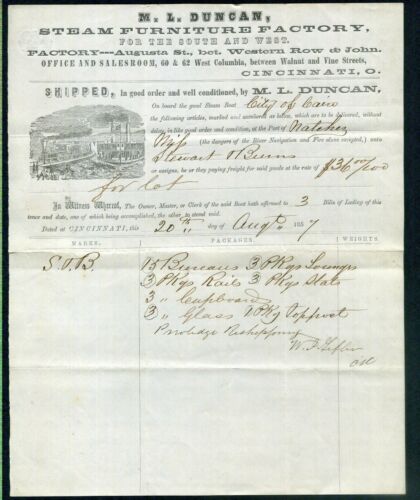 M. L. DUNCAN,
STEAM FURNITURE FACTORY,
FOR THE SOUTH AND WEST.
FACTORY---Augusta St., bet. Western Row & John.
OFFICE AND SALESROOM, 60 & 62 West Columbia, between Walnut and Vine Streets,
CINCINNATI, O.
SHIPPED, In good order and well conditioned, by M. L. DUNCAN,
On board the good Steam Boat City of Cairo
the following articles, marked and numbered as below, which are to be delivered, without
delay, in like good order and condition, at the Port of Natchez
Miss (the dangers of the River Navigation and Fire alone excepted) unto
Stewart & Burns
or assigns, he or they paying freight for said goods at the rate of $36 00/100
for lot
In Witness Whereof, The Owner, Master, or Clerk of the said Boat hath affirmed to 3 Bills of Lading of this
tenor and date, one of which being accomplished, the other to stand void.
Dated at CINCINNATI, this 20th day of Augt 1857
MARKS. PACKAGES. WEIGHTS.
S & B. 15 Bureaus 3 Pkgs Lounges
3 Pkgs Rails 3 Pkgs Slats
3 " Cupboards
3 " Glass 1 Pkg
Priviledge Reshipping
W. F.